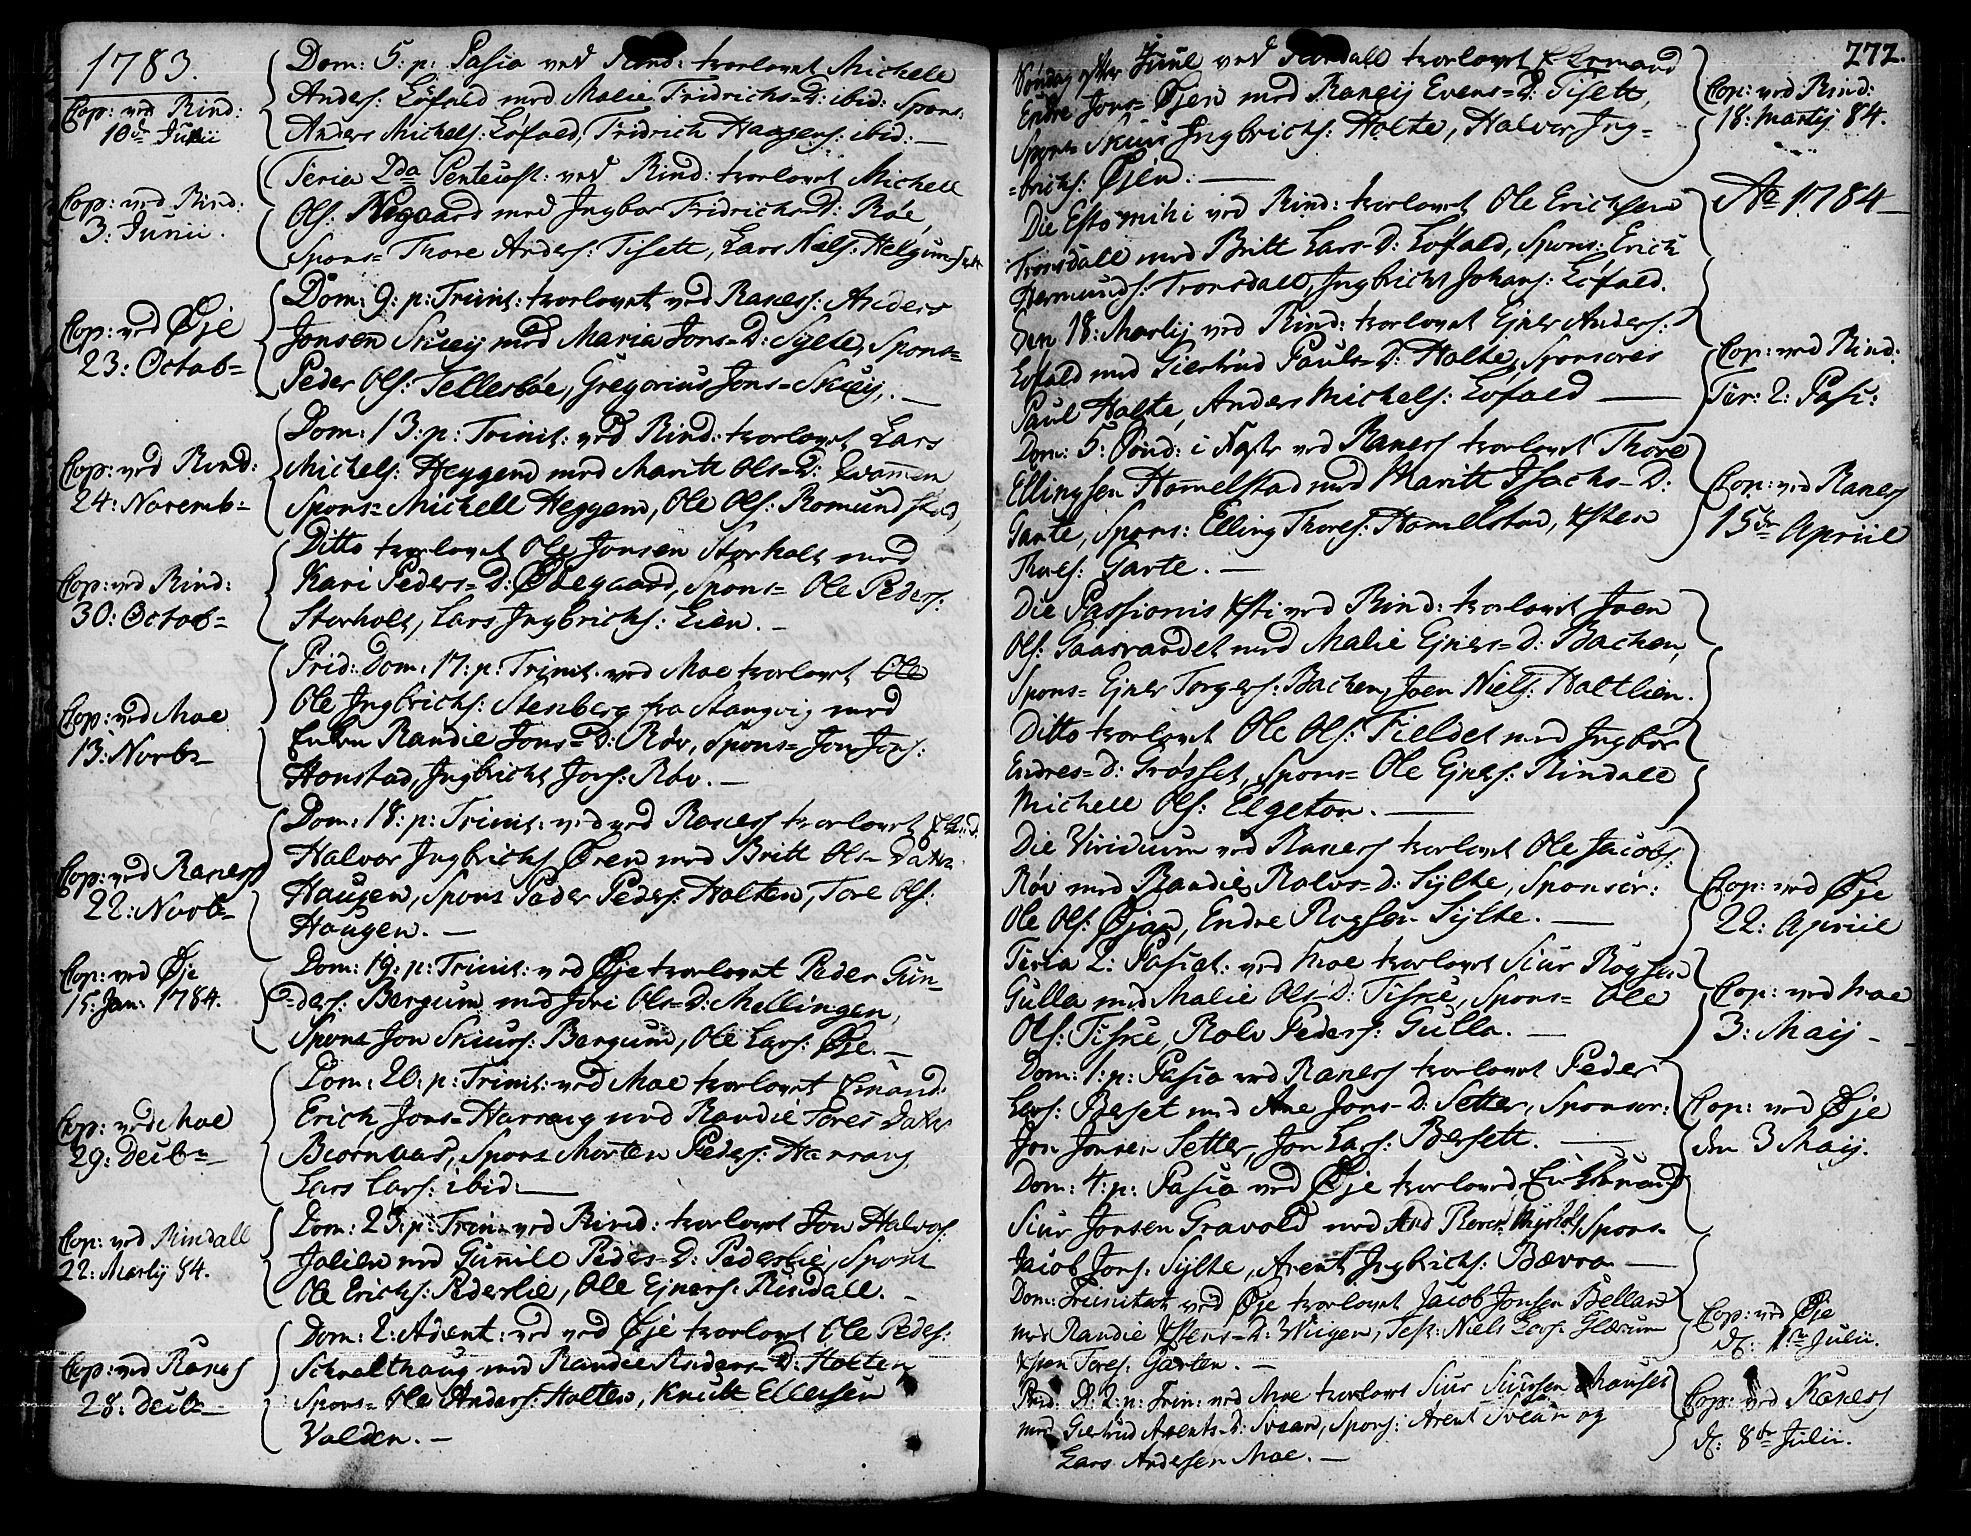 1783.
Cop: ved Rind:
10de Junii
Dom: 5: p: Pasca ved Rind: trolovet Michell
Anders: Løfald med Malie Fridrichs=D: ibid: Spons:
Anders Michels: Løfald, Fridrich Haagens: ibid: —
Cop: ved Rind:
3: Junii.
Feria 2da Pentecost: ved Rind: trolovet Michell
Ols: Negaard med Ingbor Fridrichs=D: Røe,
Spons= Thore Anders: Tisett, Lars Nels:
Cop: ved Øje
23: Octob=
Dom: 9: p: Trinit: trolovet ved Raness: Anders
Jonsen Skuey med Maria Jons=D: Sylte, Spons=
Peder Ols: Tellesbøe, Gregorius Jons= Skuey. —
Cop: ved Rind:
24: Novemb=
Dom: 13: p: Trinit: ved Rind: trolovet Lars
Michels: Heggem med Maritt Ols=D: Qvammen
Spons= Michell Heggem, Ole Ols: Romundstad,
Cop: ved Rind:
30: Octob=
Ditto trolovet Ole Jonsen Storholt med
Kari Peders=D: Ødegaard, Spons= Ole Peders:
Storholt, Lars Ingbrichs: Lien. —
Cop: ved Moe
13: Novb=
Prid: Dom: 17: p: Trinit: ved Moe trolovet Ole
Ole Ingbrichs: Stenberg fra Stangvig med
Enken Randie Jons=D: Røv, Spons= Jon Jons:
Honstad, Ingbricht Jons: Røv. —
Cop: ved Raness
22: Novb=
Dom: 18: p: Trinit: ved ved Raness trolovet
Halvor Ingbrichs Øren med Britt Ols= Datter
Haugen, Spons Peder Peders: Holten, Tore Ols:
Haugen. —
Cop: ved Øje
15: Jan: 1784.
Dom: 19: p: Trinit: ved Øje trolovet Peder Gun-
=ders: Bergum med Jori Ols=D: Mellingen,
Spons Jon Skiurs: Bergum, Ole Lars: Øje. —
Cop: ved Moe
29: Decb=
Dom: 20: p: Trinit: ved Moe trolovet
Erich Jons= Harrang med Randie Tores Datter
Biørnaas, Spons Morten Peders: Harrang
Lars Lars: ibid: —
Cop: ved Rindall
22: Martij 84.
Dom: 23: p: Trin: ved Rind: trolovet Jon Halvors:
Jolien med Gunild Peders=D: Pederslie, Spons
Ole Erichs: Pederslie, Ole Ejners: Rindall. —
Cop: ved Raness
28: Decb=
Dom: 2: Advent: ved ved Øje trolovet Ole Peders:
med Randie Anders=D: Holten
Spons= Ole Anders: Holten, Knudt Ellefsen
Volden. —
272.
Søndag efter Juul ved Rindall trolovet
Endre Jons= Øjen med Rangij Evens=D: Tisett,
Spons= Skiur Ingbrichs: Holte, Halvor Ing=
=brichs: Øjen. —
Cop: ved Rind:
18: Martij 84.
Ao 1784 —
Die Esto mihi ved Rind: trolovet Ole Erichsen
Tronsdall med Britt Lars=D: Løfald, Spons: Erich
Hermunds: Tronsdall, Ingbricht Johans: Løfald.
Den 18: Martij ved Rind: trolovet Ejner Anders:
Løfald med Giertrud Pauls=D: Holte, Sponsores
Paul Holte, Anders Michels: Løfald —
Cop: ved Rind:
Fer: 2: Pasc:
Dom: 5: Sønd: i Faste ved Raness trolovet Thore
Ellingsen Hommelstad med Maritt Isachs=D:
Garte, Spons: Elling Thores: Hommelstad,
Thores: Garte. —
Cop: ved Raness
15de Apriil
Die Passionis Xsti ved Rind: trolovet Joen
Ols: Gaasvandet med Malie Ejners=D: Bachen,
Spons= Ejner Torgers: Bachen, Joen Niels: Holtlien.
Ditto trolovet Ole Ols: Fieldet med Ingbor
Endres=D: Grøsset, Spons= Ole Ejners: Rindall
Michell Ols: Elgeton. —
Die Viridium ved Raness trolovet Ole Jacobs:
Røv med Randie Rolvs=D: Sylte, Sponsor:
Ole Ols: Øjan, Endre Rogsen Sylte. —
Cop: ved Øje
22: Apriil
Feria 2: Pascat: ved Moe trolovet Siur Rogsen
Gulla med Malie Ols=D: Tiske, Spons= Ole
Ols: Tiske, Rolv Peders: Gulla. —
Cop: ved Moe
3: Maij —
Dom: 1: p: Pasca ved Raness trolovet Peder
Lars: Beset med Ane Jons=D: Setter, Sponsor:
Jon Jonsen Setter, Jon Lars: Bersett. —
Cop: ved Øje
den 3 Maij.
Dom: 4: p: Pasca ved Øje troloved
Siur Jonsen Gravold med Spons=
Jacob Jons: Sylte, Arent Ingbrichs: Bævra —
Dom: Trinitat: ved Øje trolovet Jacob Jonsen Belland
med Randie Istens=D: Wiigen, Test: Niels Lars: Glærum
Isten Tores: Garten. —
Cop: ved Øje
d: 1de Julii.
Prid: D: 2: p: Trin: ved Moe trolovet Siur Siursen
med Giertrud Arents=D: Svean, Spons: Arent Svean og
Lars Andersen Moe. —
Cop: ved Raness
d: 8de Julii.